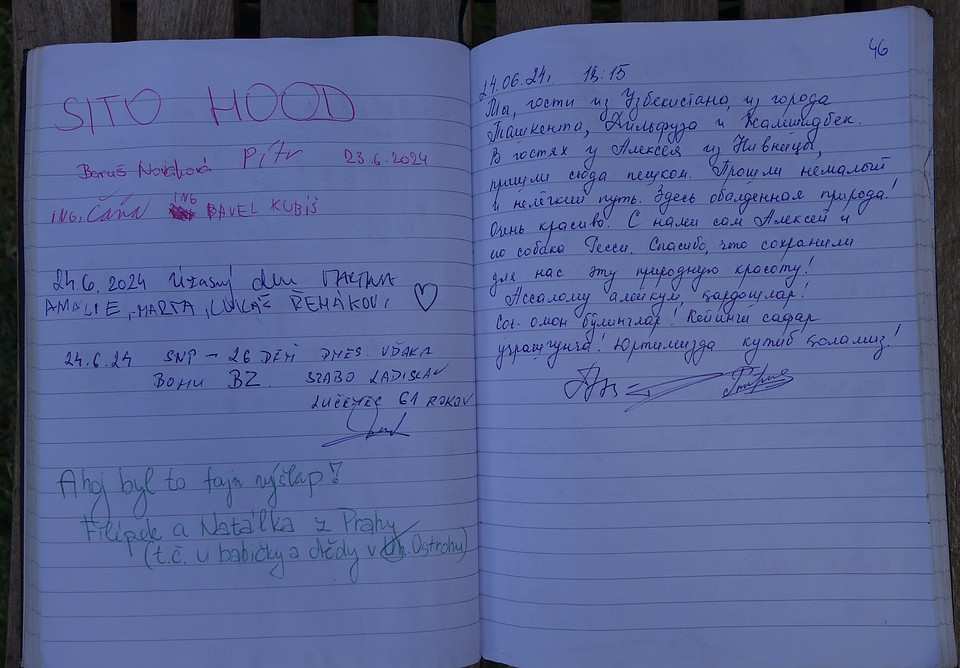 SITO HOOD
Baruš Nováková Pítr 23.6.2024
ING. Čáňa ING PAVEL KUBIŠ
24.6.2024 Úžasný den MARTINA
AMÁLIE, MARTA, LUKÁŠ ŘEMÁKOVI ♡
24.6.24 SNP - 26 DEŇ DNES. VĎAKA
BOHU BZ. SZABO LADISLAV
LUČENEC 61 ROKOV
Ahoj byl to fajn výšlap!
Filípek a Natálka z Prahy
(t.č. u babičky a dědy v Uh. Ostrohu)
46
24.06.24. 15
Мы, гости из Узбекистана, из города
Ташкента, Дильфуза и Жамшидбек.
В гостях у Алексея из Нивницы,
пришли сюда пешком. Прошли немалый
и нелёгкий путь. Здесь обалденная природа!
Очень красиво. С нами сам Алексей и
его собака Джесси. Спасибо, что сохранили
для нас эту природную красоту!
Ассалому алейкум, қардошлар!
Соғ-омон бўлинглар! Кейинги сафар
учрашгунча! Юртимизда кутиб қоламиз!